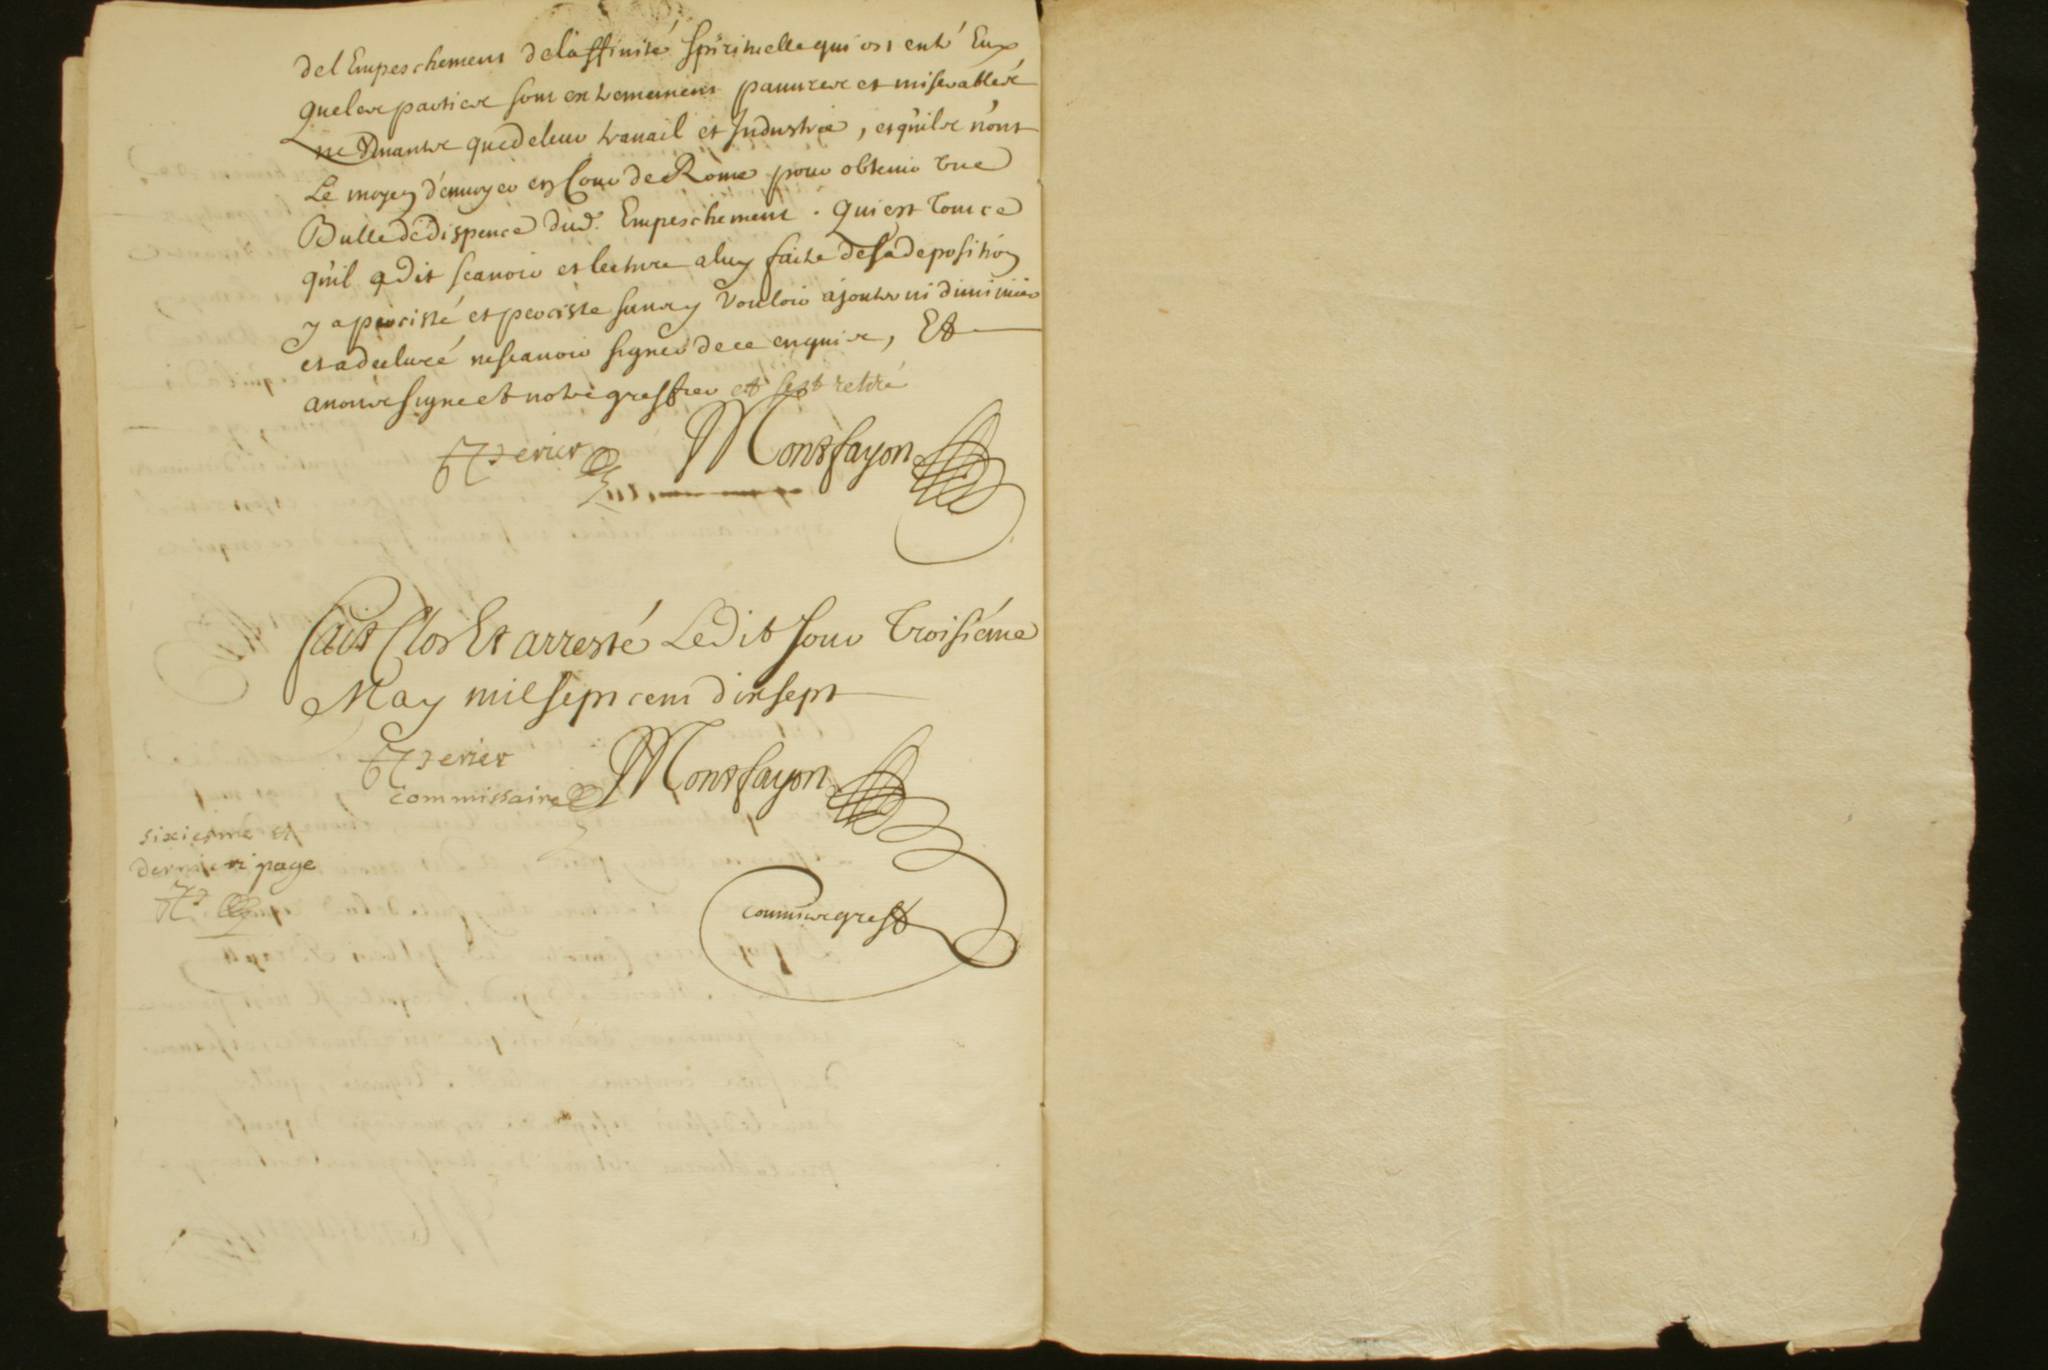 del Empeschement del'affinité spirituelle qui est entr' Eux
Que les parties sont extremement pauures et miserables
ne viuants que de leur trauail et Industrie, et qu'ils n'ont
Le moyen d'enuoyer en Cour de Rome pour obtenir vne
Bulle de dispence dud. Empeschement. Qui est tout ce
qu'il a dit scauoir et lecture a luy faite de sa deposition
y a persisté et persiste sans y vouloir ajouter ni diminüer
et a declaré ne scauoir signer de ce enquis, Et
auons signe et notre greffier et s'est retiré
perier Montfayon
fait Clos Et arresté Ledit Jour Troisiéme
May mil sept cent dix sept
perier Montfayon
commissaire
sixiesme et
derniere page
commis greff